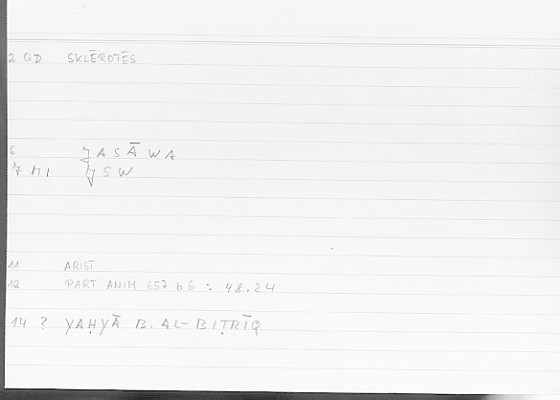 2 QD SKLĒROTĒS
6 JASĀWA
7 MI JSW
11 ARIST
12 PART ANIM 657 b 6 : 48.24
14 ? YAḤYĀ B. AL-BIṬRĪQ